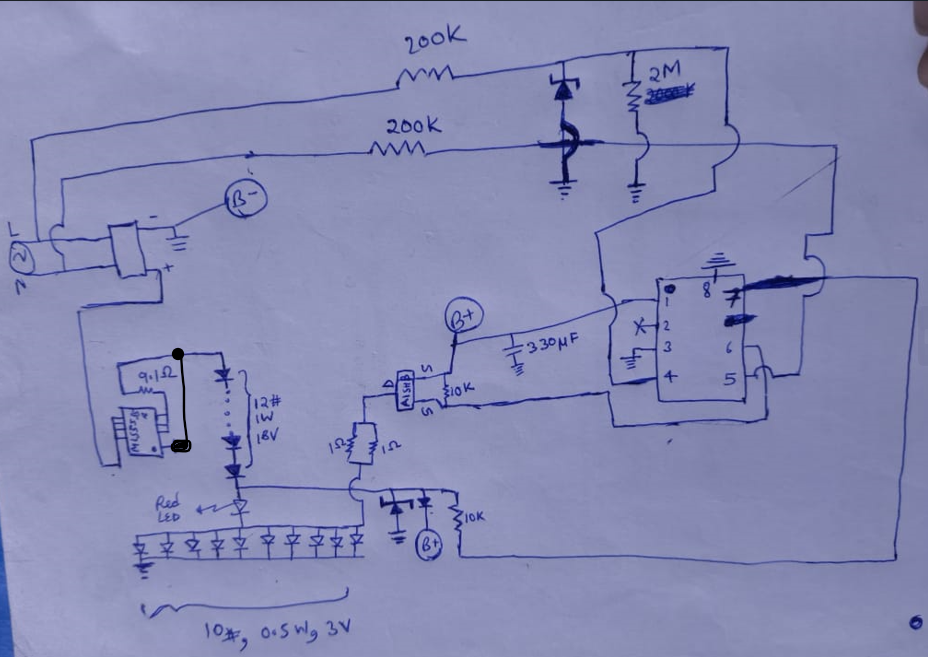 200K
2M
200K
B-
L
-
N
+
8
7
1
B+
X 2
330µF
3
6
9.1Ω
D
S
A1SHB
10K
4
5
S
12#
1W
18V
1Ω
1Ω
Red
LED
10K
B+
10#, 0.5W, 3V